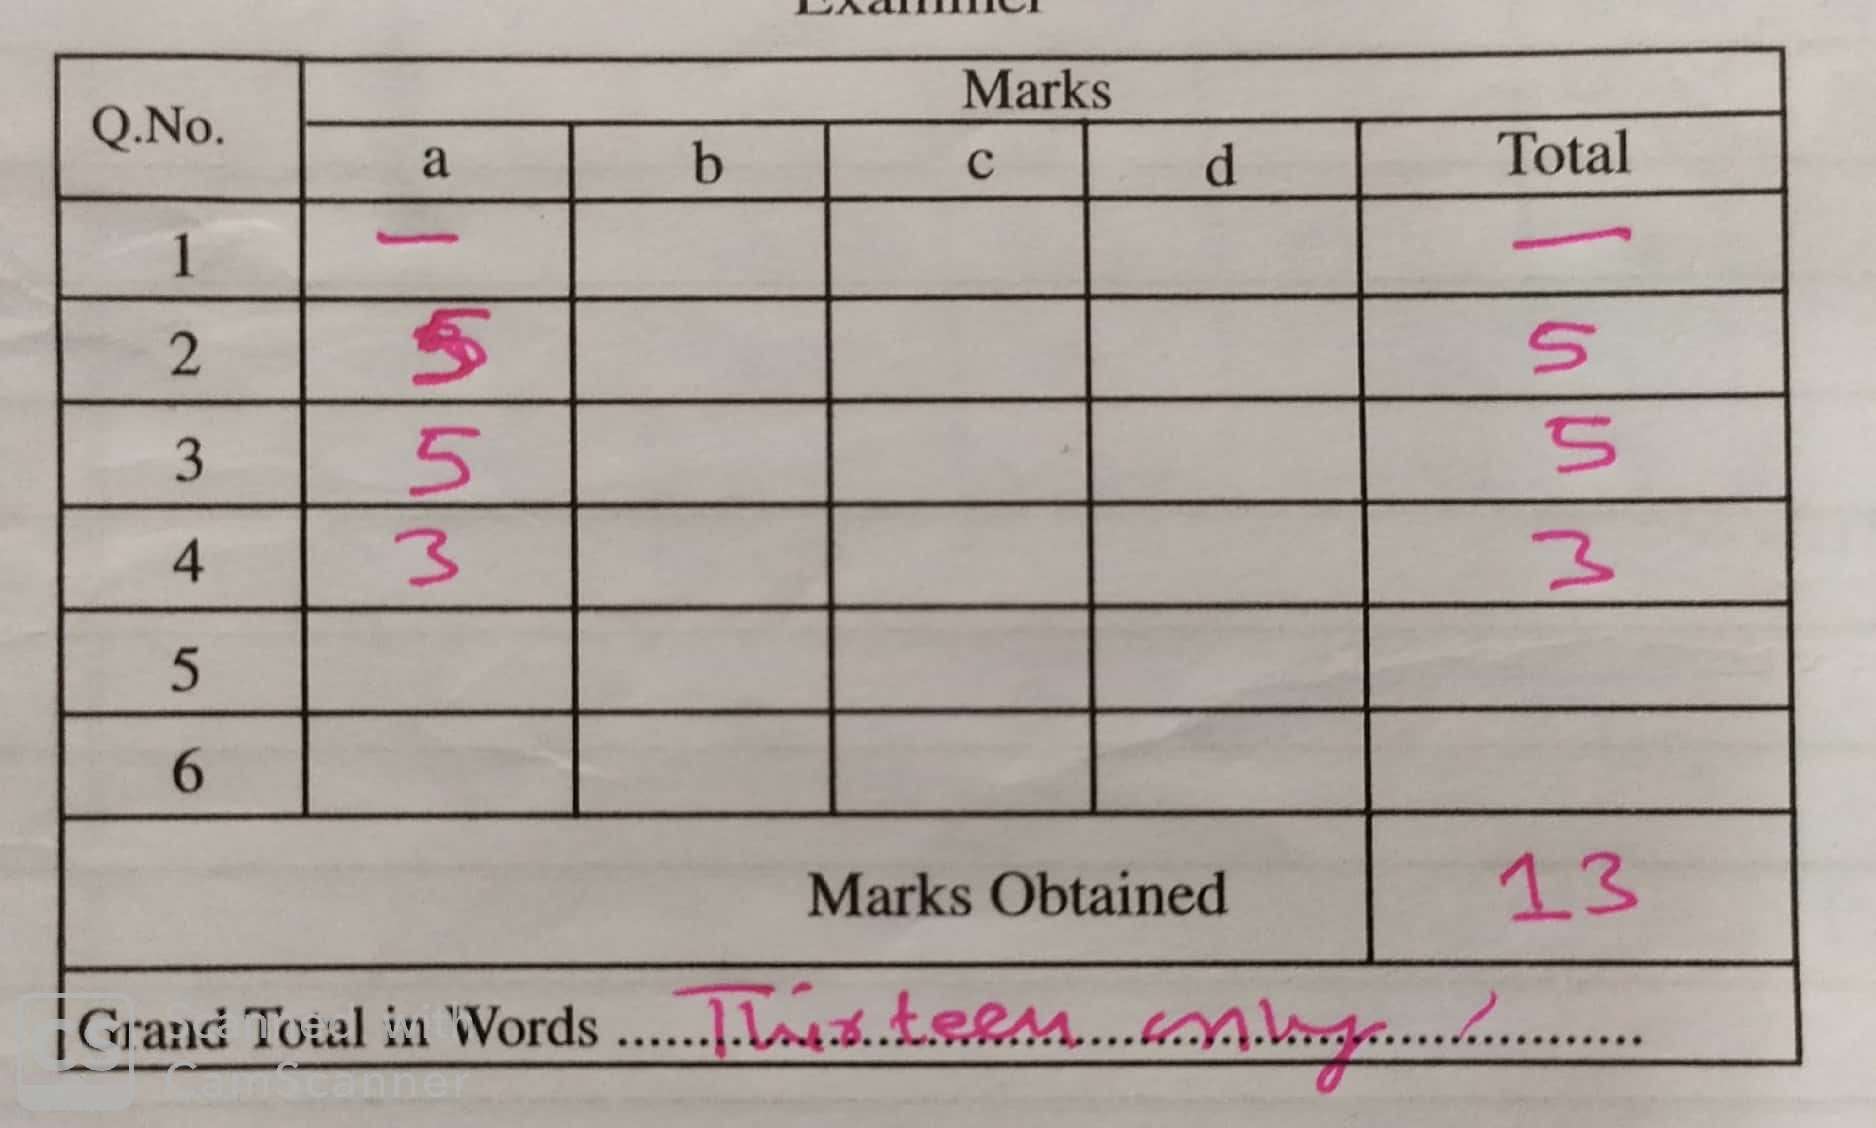 Examiner
Marks
Q.No.
a b c d Total
1 — —
2 5 5
3 5 5
4 3 3
5
6
Marks Obtained 13
Grand Total in Words ..... Thirteen only .....
Scanned with
CS CamScanner